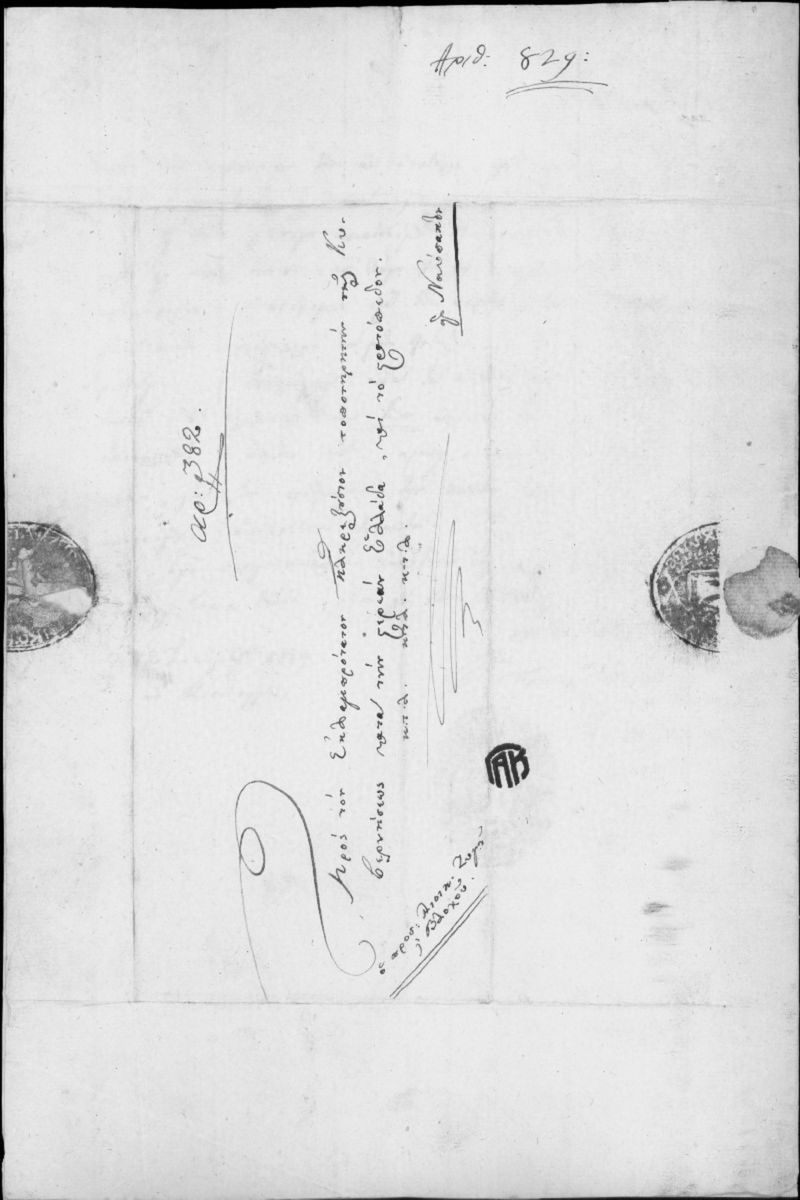 Αριθ: 829:
αρ: 382.
Πρὸς τὸν Ἐκλαμπρότατον πληρεξούσιον τοποτηρητὴν τῆς Κυ-
βερνήσεως κατὰ τὴν στερεὰν Ἑλλάδα, καὶ τὸ
κ.τ.λ. κ.τ.λ. κ.τ.λ.
Ναύπακτον
ὁ προσ: διοικ:
Βλοχοῦ.
ΓΑΚ